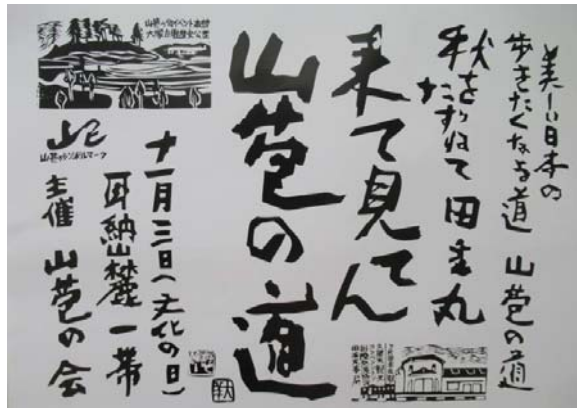 美しい日本の
歩きたくなる道 山苞の道
秋をたずねて 田主丸
来て見てん
山苞の道
十一月三日(文化の日)
耳納山麓一帯
主催 山苞の会
大塚古墳歴史公園
山苞のシンボルマーク